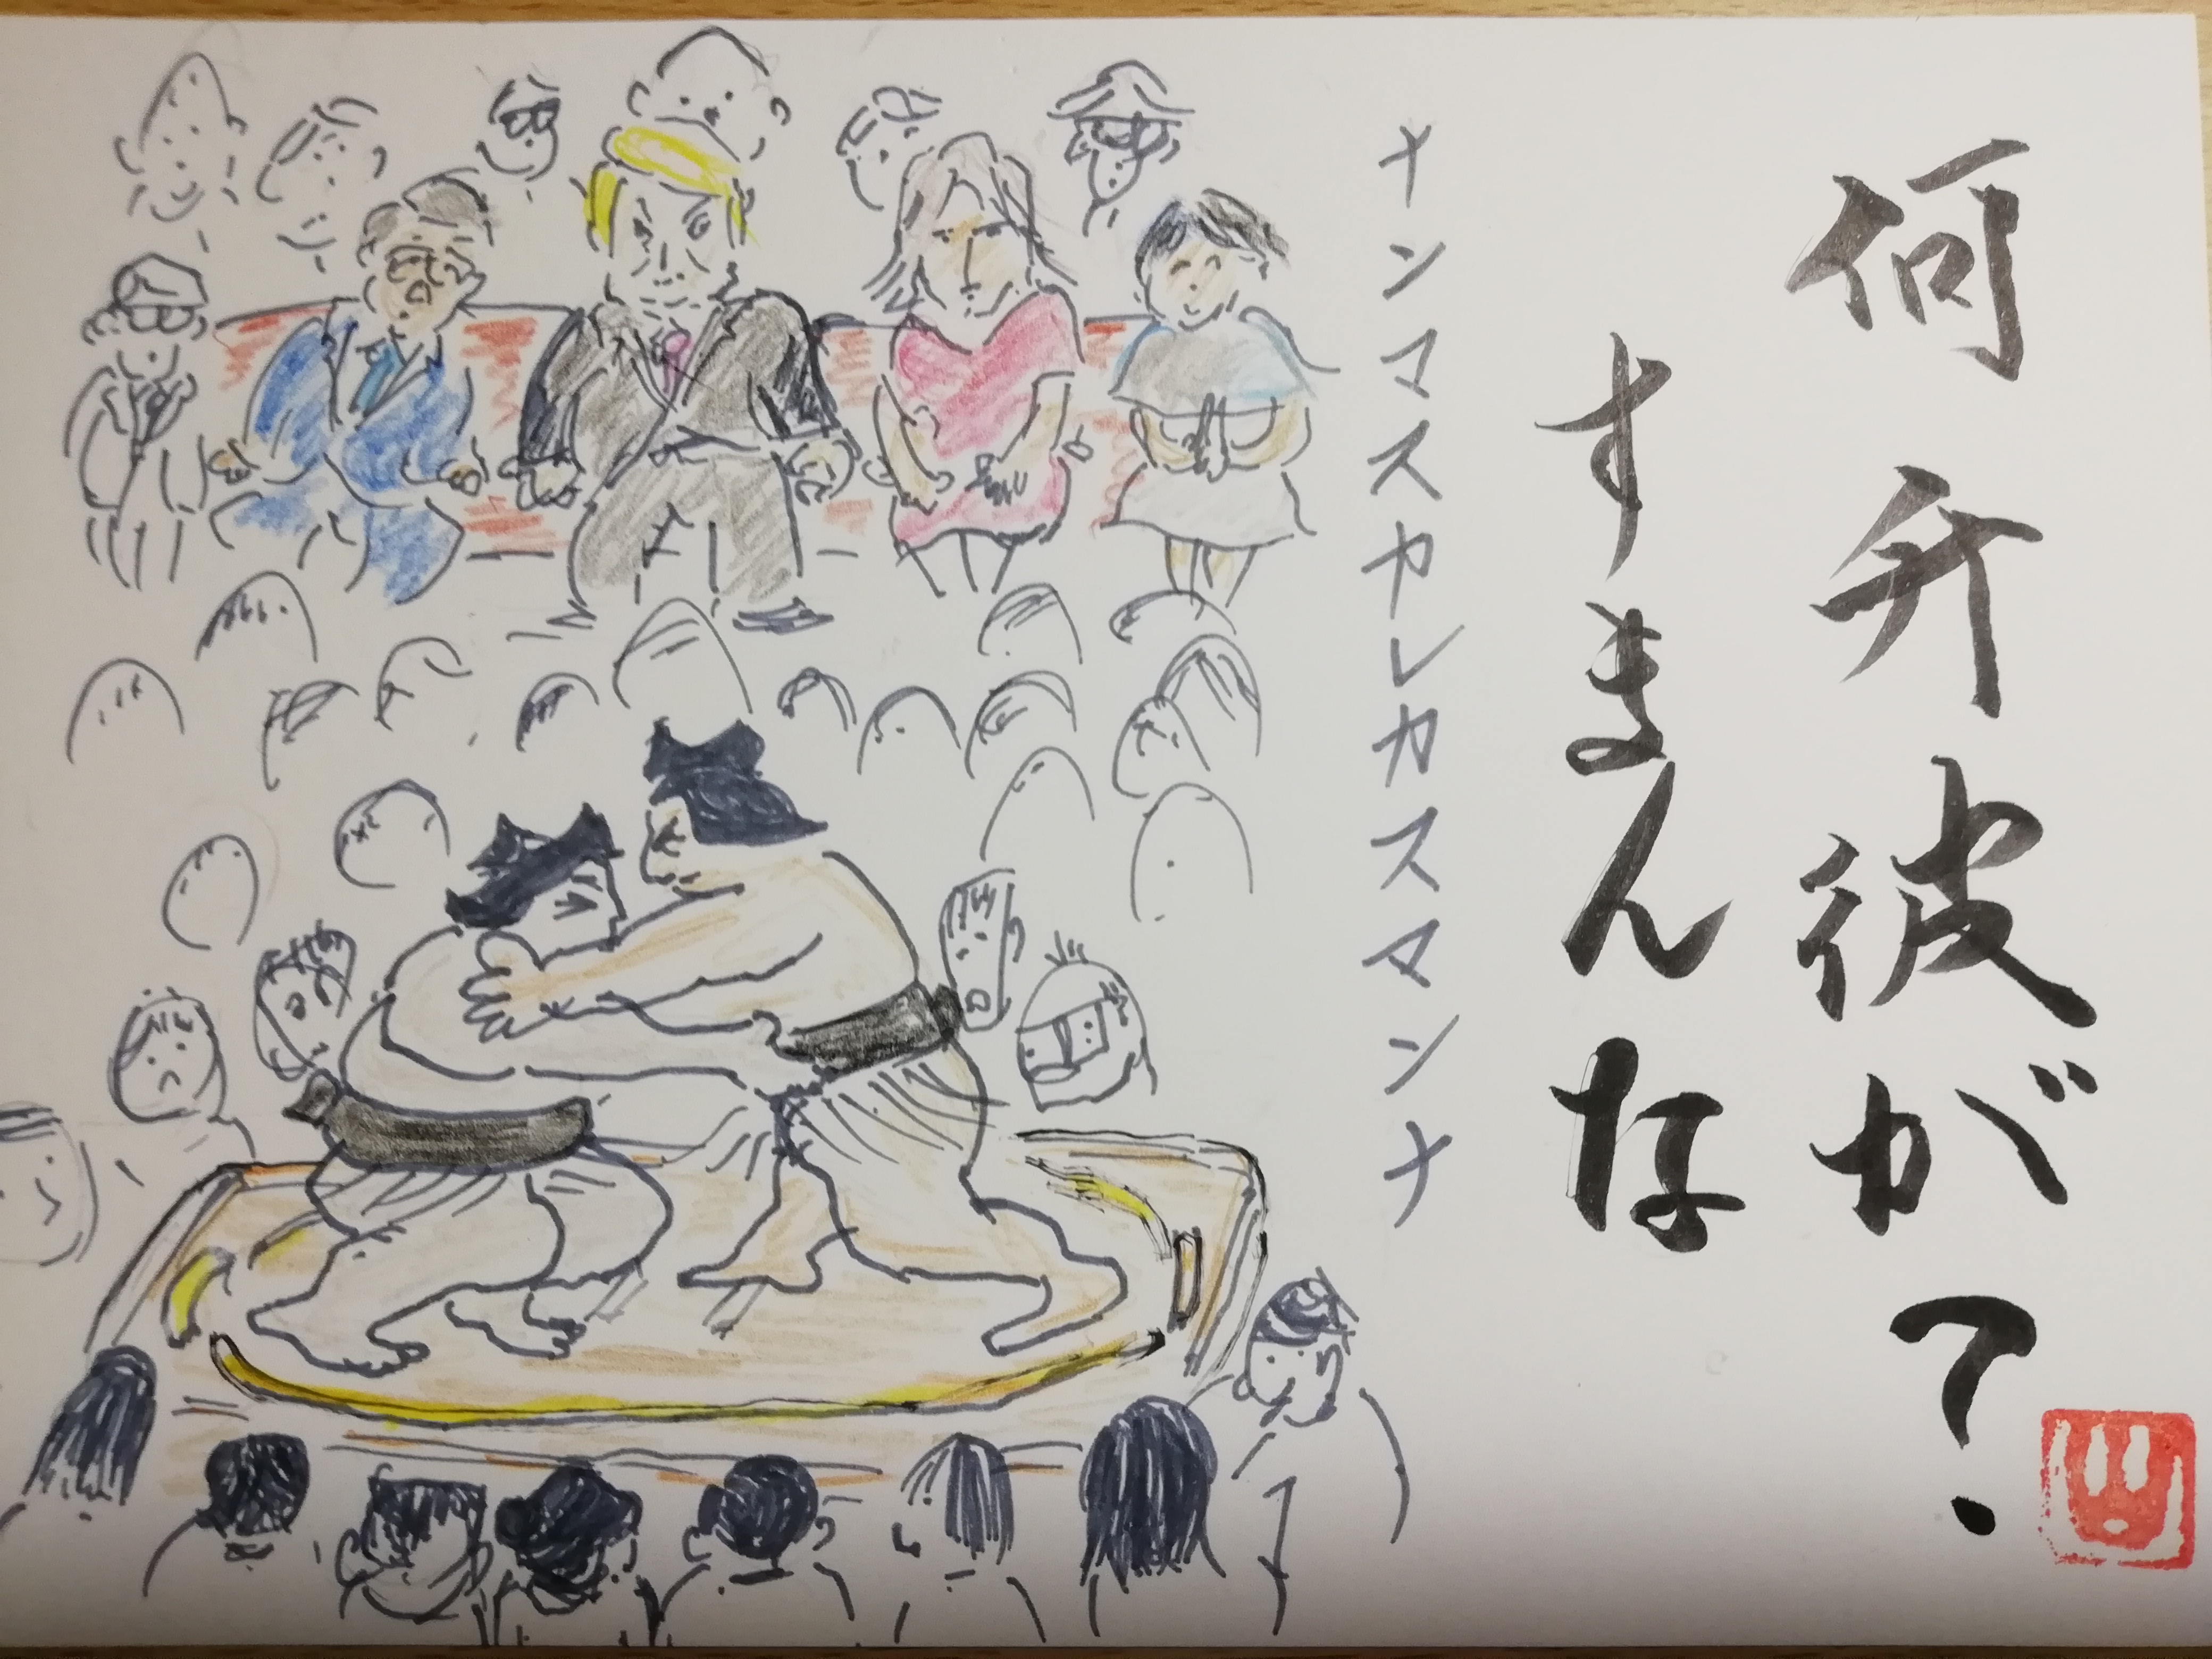 何升彼が？
すまんな
ナンマスカレカスマンナ